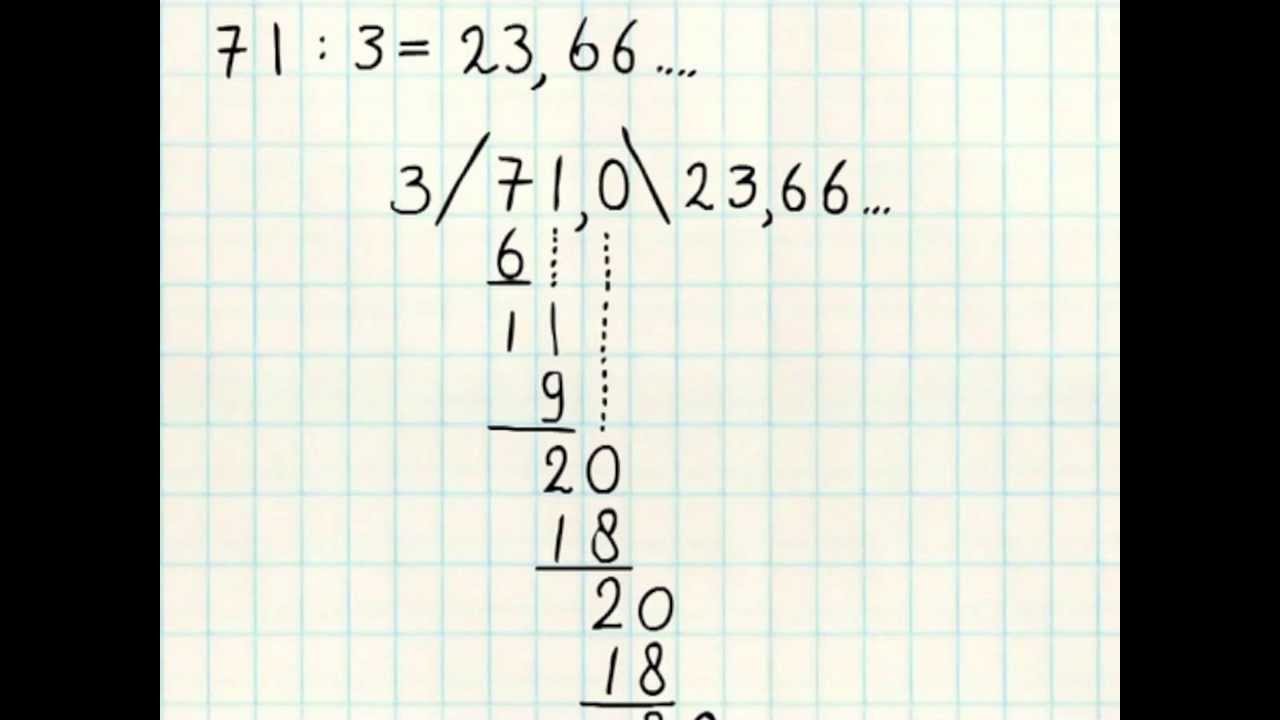 71 : 3 = 23,66....
3/71,0\23,66...
6
11
9
20
18
20
18